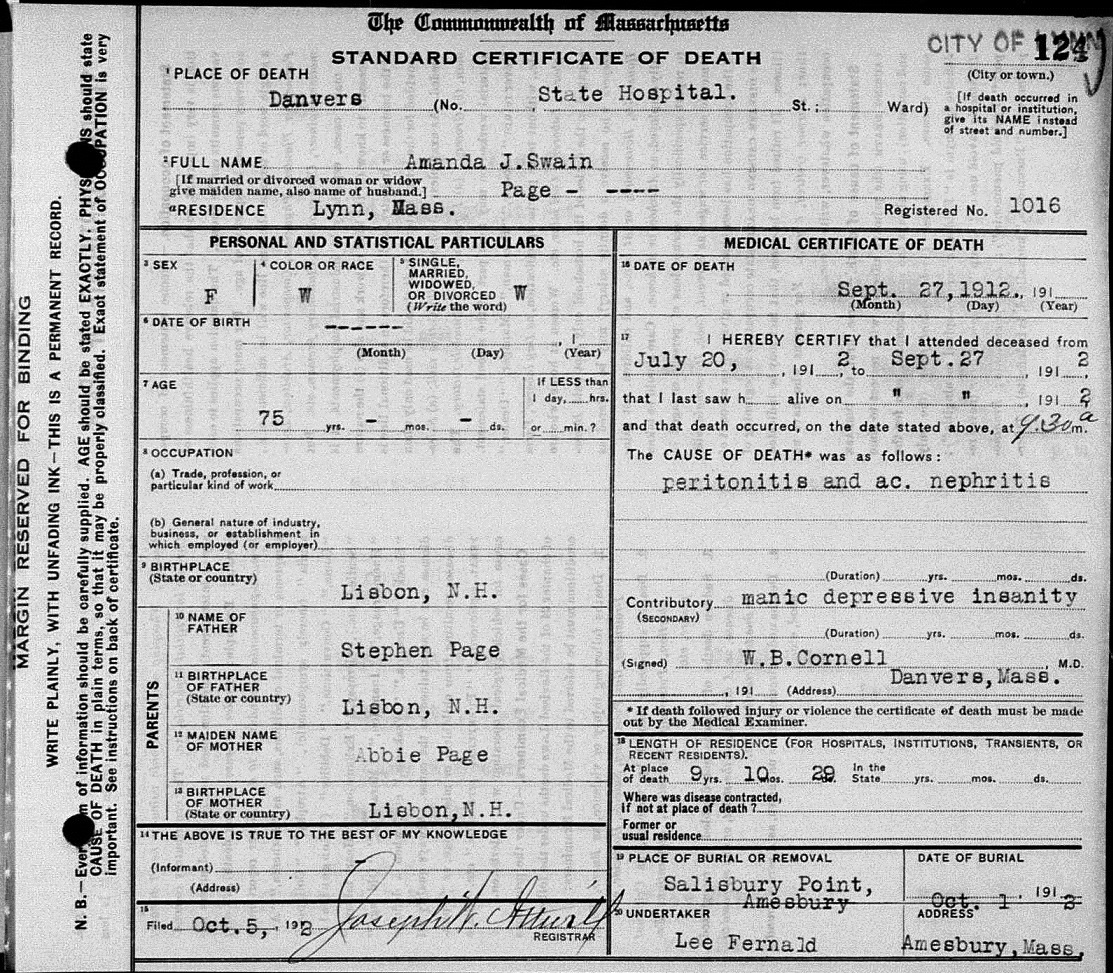 The Commonwealth of Massachusetts
STANDARD CERTIFICATE OF DEATH
CITY OF LYNN
124
(City or town.)
1 PLACE OF DEATH
Danvers (No. State Hospital. St.; Ward)
[If death occurred in a hospital or institution, give its NAME instead of street and number.]
2 FULL NAME Amanda J.Swain
[If married or divorced woman or widow
give maiden name, also name of husband.] Page - ----
a RESIDENCE Lynn, Mass.
Registered No. 1016
PERSONAL AND STATISTICAL PARTICULARS
3 SEX
F
4 COLOR OR RACE
W
5 SINGLE,
MARRIED,
WIDOWED,
OR DIVORCED W
(Write the word)
6 DATE OF BIRTH
------
, 1
(Month) (Day) (Year)
7 AGE
75 yrs. - mos. - ds.
If LESS than
1 day, hrs.
or min.?
8 OCCUPATION
(a) Trade, profession, or
particular kind of work
(b) General nature of industry,
business, or establishment in
which employed (or employer)
9 BIRTHPLACE
(State or country)
Lisbon, N.H.
PARENTS
10 NAME OF
FATHER
Stephen Page
11 BIRTHPLACE
OF FATHER
(State or country)
Lisbon, N.H.
12 MAIDEN NAME
OF MOTHER
Abbie Page
13 BIRTHPLACE
OF MOTHER
(State or country)
Lisbon,N.H.
14 THE ABOVE IS TRUE TO THE BEST OF MY KNOWLEDGE
(Informant)
(Address)
15
Filed Oct.5, 192
Joseph W.
REGISTRAR
MEDICAL CERTIFICATE OF DEATH
16 DATE OF DEATH
Sept. 27,1912., 191
(Month) (Day) (Year)
17 I HEREBY CERTIFY that I attended deceased from
July 20, , 191 2 , to Sept.27 , 191 2
that I last saw h alive on " " , 191 2
and that death occurred, on the date stated above, at 9.30 a m.
The CAUSE OF DEATH* was as follows:
peritonitis and ac. nephritis
(Duration) yrs. mos. ds.
Contributory manic depressive insanity
(SECONDARY)
(Duration) yrs. mos. ds.
(Signed) W.B.Cornell , M.D.
Danvers,Mass.
, 191 (Address)
* If death followed injury or violence the certificate of death must be made
out by the Medical Examiner.
18 LENGTH OF RESIDENCE (FOR HOSPITALS, INSTITUTIONS, TRANSIENTS, OR
RECENT RESIDENTS).
At place
of death 9 yrs. 10 mos. 29 In the
State yrs. mos. ds.
Where was disease contracted,
if not at place of death?
Former or
usual residence
19 PLACE OF BURIAL OR REMOVAL
Salisbury Point,
Amesbury
DATE OF BURIAL
Oct. 1 , 191 2
20 UNDERTAKER
Lee Fernald
ADDRESS
Amesbury,Mass.
MARGIN RESERVED FOR BINDING
WRITE PLAINLY, WITH UNFADING INK—THIS IS A PERMANENT RECORD.
N. B.—Every of information should be carefully supplied. AGE should be stated EXACTLY. should state
CAUSE OF DEATH in plain terms, so that it may be properly classified. Exact statement of OCCUPATION is very
important. See instructions on back of certificate.